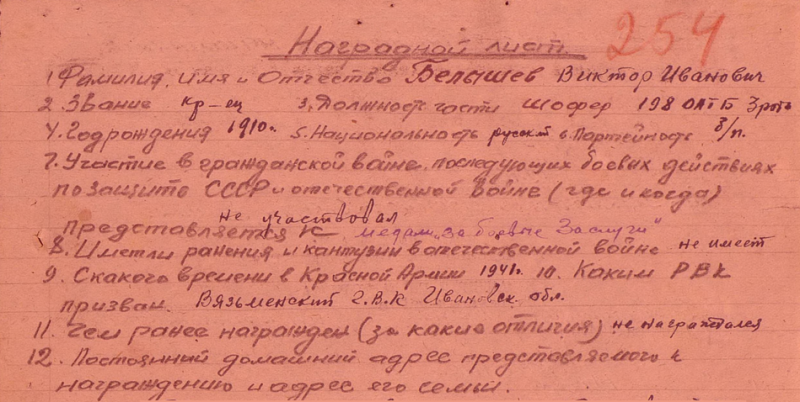 Наградной лист 254
1. Фамилия, имя и Отчество Белышев Виктор Иванович
2. Звание кр-ец 3. Должность части шофер 198 ОАТБ 3 рота
4. Год рождения 1910 г. 5. Национальность русский 6. Партейность б/п.
7. Участие в гражданской войне, последующих боевых действиях
по защите СССР и отечественной войне (где и когда)
не участвовал
представляется к медали "за боевые Заслуги"
8. Имеетли ранения и кантузии в отечественной войне не имеет
9. Скакого времени в Красной Армии 1941 г. 10. Каким РВК
призван. Вяземенский Г.В.К Ивановск. обл.
11. Чем ранее награжден (за какие отличия) не награждался
12. Постоянный домашний адрес представляемого к
награждению и адрес его семьи.